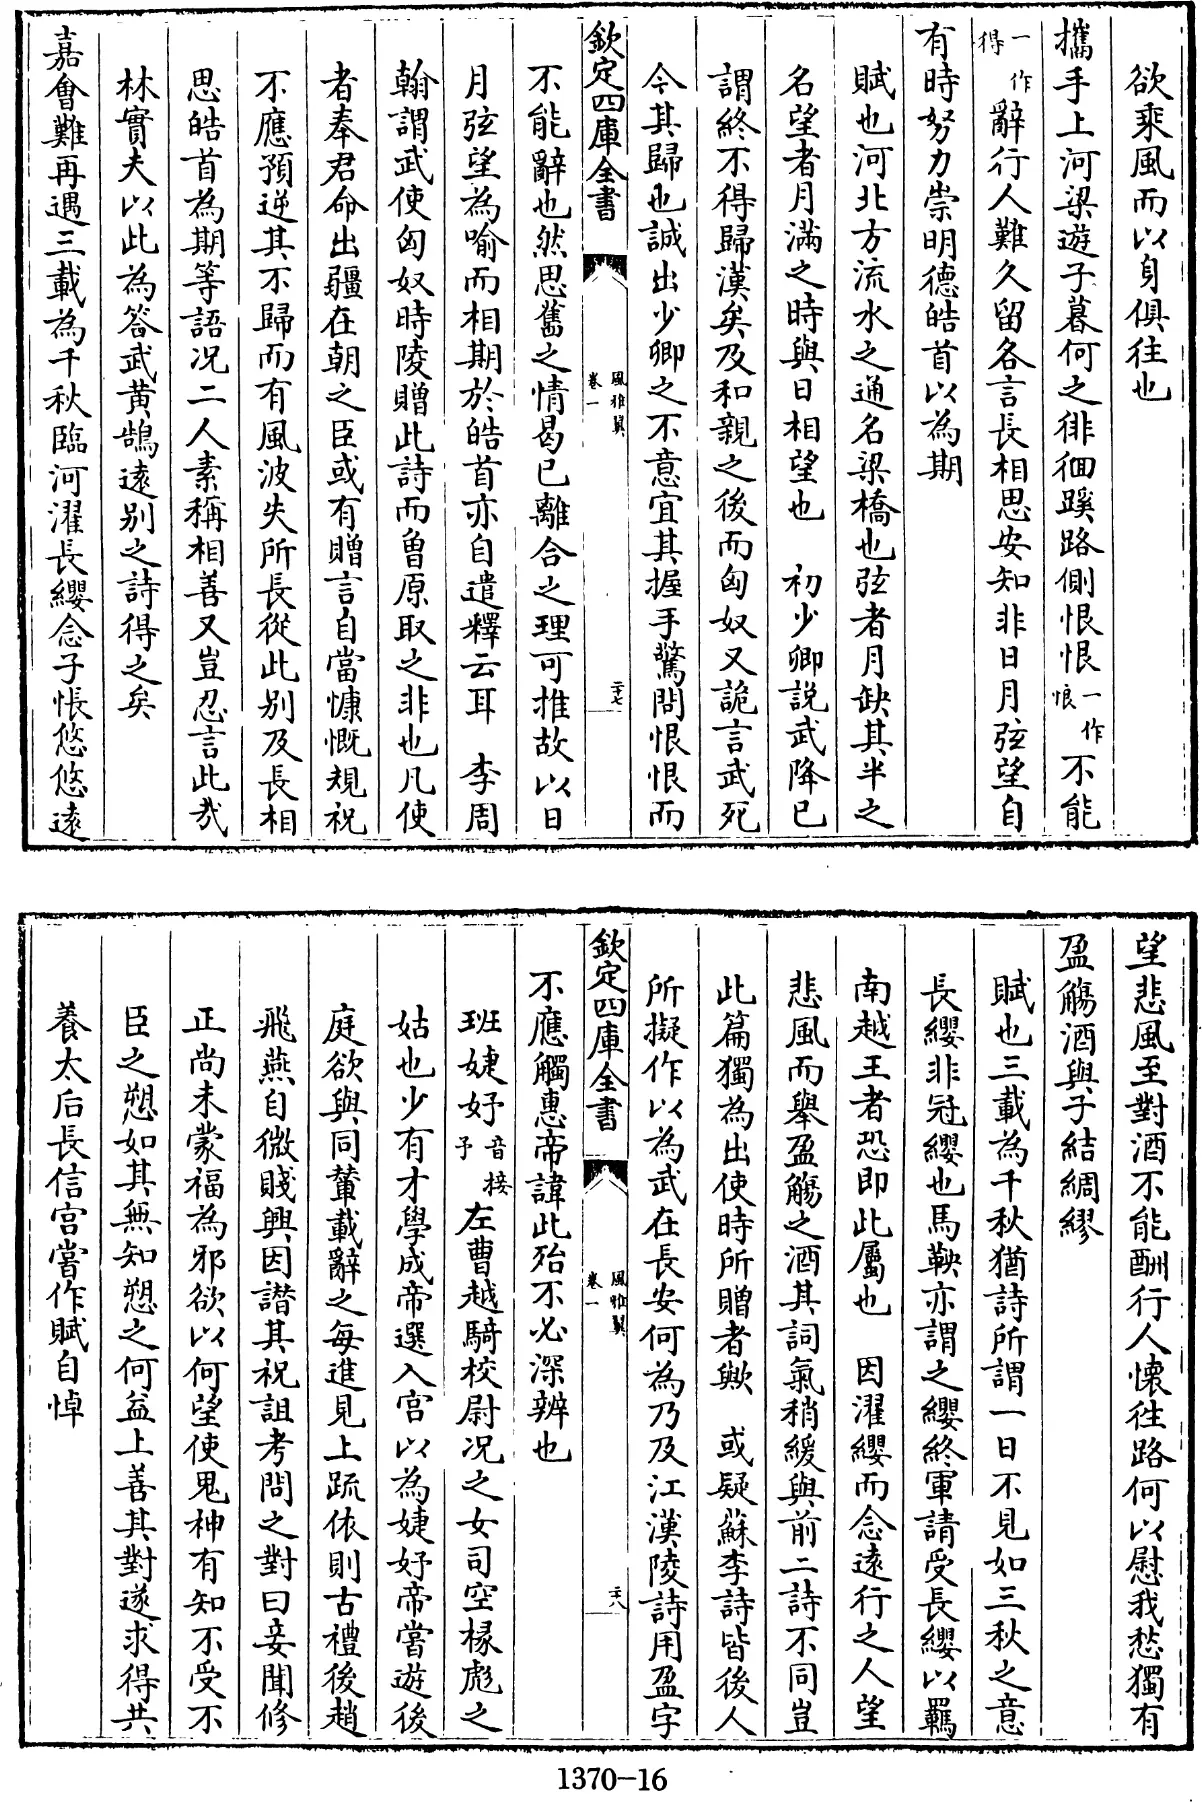 欲乘風而以身俱往也
攜手上河梁遊子暮何之徘徊蹊路側恨恨一作悢不能
一作得辭行人難久留各言長相思安知非日月弦望自
有時努力崇明德皓首以為期
賦也河北方流水之通名梁橋也弦者月缺其半之
名望者月滿之時與日相望也　初少卿説武降已
謂終不得歸漢矣及和親之後而匈奴又詭言武死
今其歸也誠出少卿之不意宜其握手驚問恨恨而
欽定四庫全書　風雅翼卷一　二十七
不能辭也然思舊之情曷已離合之理可推故以日
月弦望為喻而相期於皓首亦自遣釋云耳　李周
翰謂武使匈奴時陵贈此詩而曾原取之非也凡使
者奉君命出疆在朝之臣或有贈言自當慷慨規祝
不應預逆其不歸而有風波失所長從此别及長相
思皓首為期等語况二人素稱相善又豈忍言此㢤
林實夫以此為答武黄鵠逺别之詩得之矣
嘉會難再遇三載為千秋臨河濯長纓念子悵悠悠逺
望悲風至對酒不能酬行人懐徃路何以慰我愁獨有
盈觴酒與子結綢繆
賦也三載為千秋猶詩所謂一日不見如三秋之意
長纓非冠纓也馬鞅亦謂之纓終軍請受長纓以羈
南越王者恐即此屬也　因濯纓而念逺行之人望
悲風而舉盈觴之酒其詞氣稍緩與前二詩不同豈
此篇獨為出使時所贈者歟　或疑蘇李詩皆後人
所擬作以為武在長安何為乃及江漢陵詩用盈字
欽定四庫全書　風雅翼卷一　二十八
不應觸惠帝諱此殆不必深辨也
班婕妤音接予左曹越騎校尉况之女司空椽彪之
姑也少有才學成帝選入宫以為婕妤帝嘗遊後
庭欲與同輦載辭之每進見上疏依則古禮後趙
飛燕自微賤興因譛其祝詛考問之對曰妾聞修
正尚未蒙福為邪欲以何望使鬼神有知不受不
臣之愬如其無知愬之何益上善其對遂求得共
養太后長信宫嘗作賦自悼
1370-16